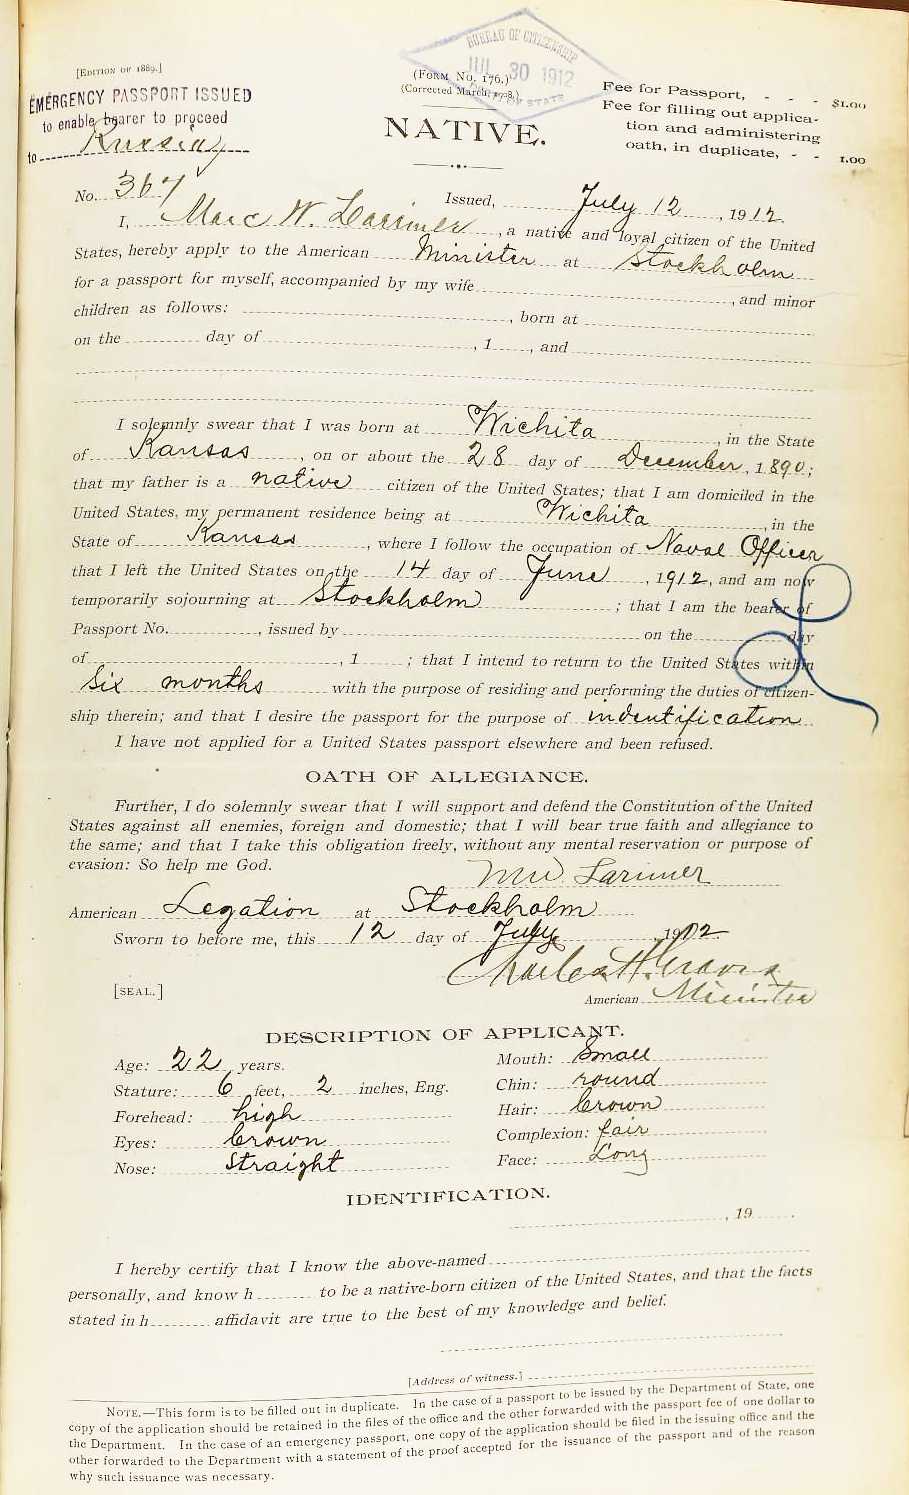 [EDITION OF 1889.]
BUREAU OF CITIZENSHIP
JUL 30 1912
(FORM No. 176.)
(Corrected March, 1908.)
EMERGENCY PASSPORT ISSUED
to enable bearer to proceed
to Russia
Fee for Passport, - - - $1.00
Fee for filling out applica-
tion and administering
oath, in duplicate, - - 1.00
NATIVE.
No. 367 Issued, July 12, 1912.
I, Marc W. Larimer, a native and loyal citizen of the United
States, hereby apply to the American Minister at Stockholm
for a passport for myself, accompanied by my wife, and minor
children as follows: , born at
on the day of , 1 , and
I solemnly swear that I was born at Wichita, in the State
of Kansas, on or about the 28 day of December, 1890;
that my father is a native citizen of the United States; that I am domiciled in the
United States, my permanent residence being at Wichita, in the
State of Kansas, where I follow the occupation of Naval Officer
that I left the United States on the 14 day of June, 1912, and am now
temporarily sojourning at Stockholm; that I am the bearer of
Passport No. , issued by on the day
of , 1 ; that I intend to return to the United States within
six months with the purpose of residing and performing the duties of citizen-
ship therein; and that I desire the passport for the purpose of indentification
I have not applied for a United States passport elsewhere and been refused.
OATH OF ALLEGIANCE.
Further, I do solemnly swear that I will support and defend the Constitution of the United
States against all enemies, foreign and domestic; that I will bear true faith and allegiance to
the same; and that I take this obligation freely, without any mental reservation or purpose of
evasion: So help me God.
M.W. Larimer
American Legation at Stockholm
Sworn to before me, this 12 day of July, 1912.
Charles H. Graves
[SEAL.]
American Minister
DESCRIPTION OF APPLICANT.
Age: 22 years. Mouth: Small
Stature: 6 feet, 2 inches, Eng. Chin: round
Forehead: high Hair: brown
Eyes: brown Complexion: fair
Nose: Straight Face: Long
IDENTIFICATION.
, 19
I hereby certify that I know the above-named
personally, and know h to be a native-born citizen of the United States, and that the facts
stated in h affidavit are true to the best of my knowledge and belief.
[Address of witness.]
NOTE.—This form is to be filled out in duplicate. In the case of a passport to be issued by the Department of State, one
copy of the application should be retained in the files of the office and the other forwarded with the passport fee of one dollar to
the Department. In the case of an emergency passport, one copy of the application should be filed in the issuing office and the
other forwarded to the Department with a statement of the proof accepted for the issuance of the passport and of the reason
why such issuance was necessary.